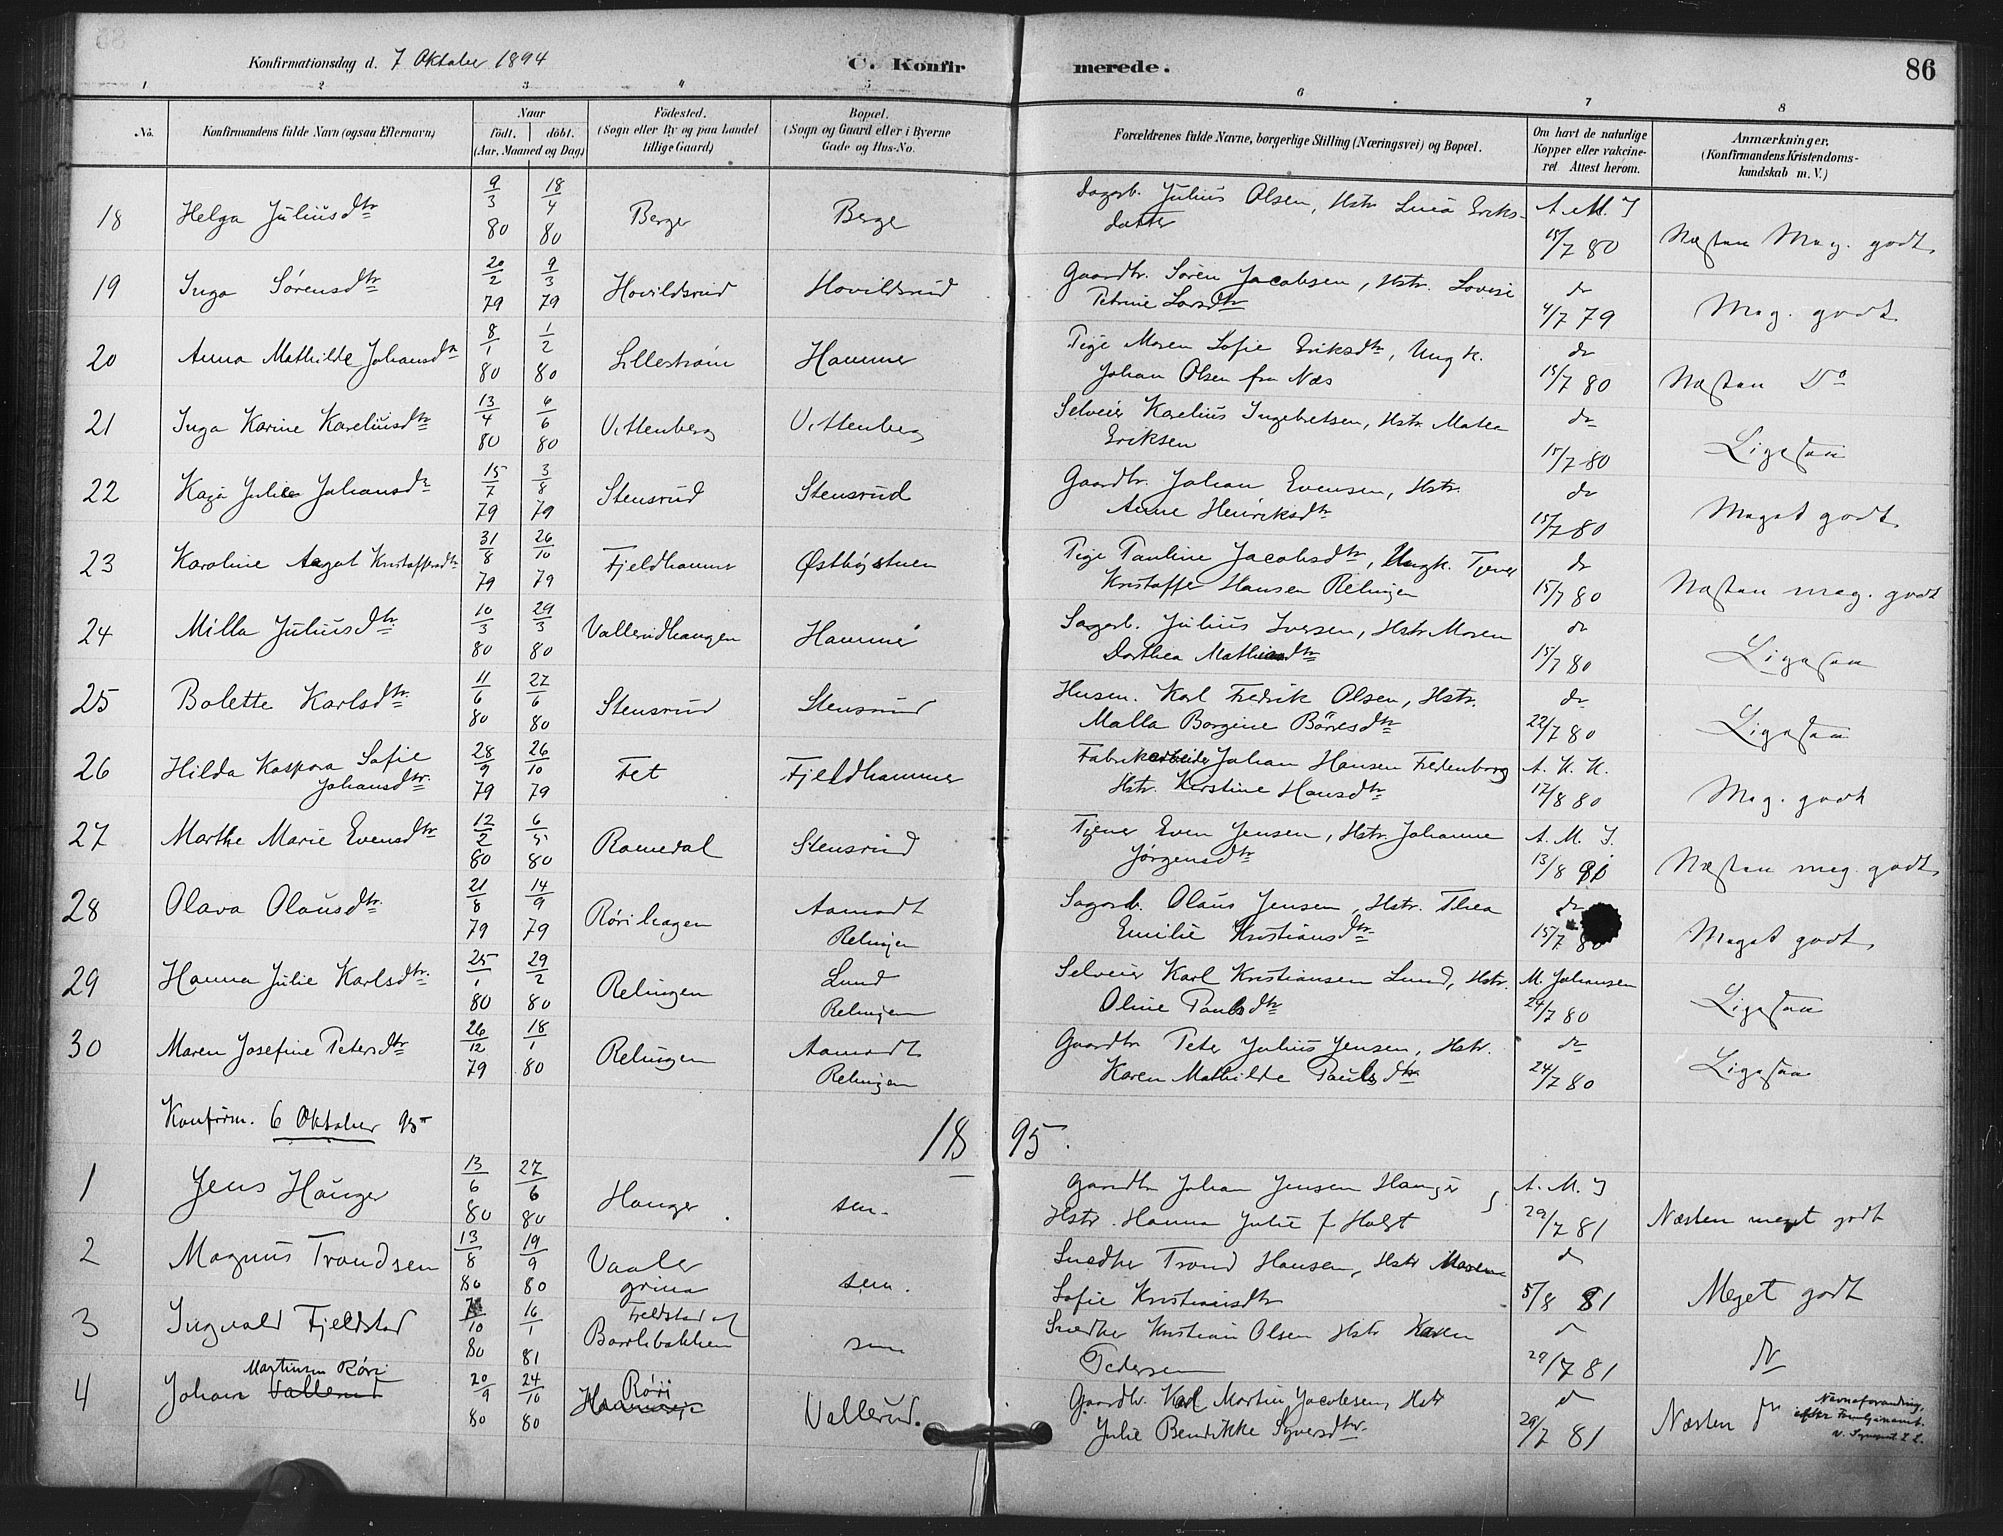 Konfirmationsdag d. 7 Oktober 1894 C. Konfir merede. 86
1 2 3 4 5 6 7 8
No. Konfirmandens fulde Navn (ogsaa Efternavn) Naar födt. döbt. (Aar, Maaned og Dag) Födested. (Sogn eller By og paa Landet tillige Gaard) Bopæl. (Sogn og Gaard eller i Byerne Gade og Hus-No. Forældrenes fulde Navne, borgerlige Stilling (Næringsvei) og Bopæl. Om havt de naturlige Kopper eller vakcineret Attest herom. Anmærkninger. (Konfirmandens Kristendomskundskab m.V.)
18 Helga Juliusdtr 9/3 80 18/4 80 Berge Berge Dagarb. Julius Olsen, Hstr Lina Eriksdatter A. M. J 15/7 80 Næsten Mag. godt
19 Inga Sørensdtr 20/2 79 9/3 79 Hovildsrud Hovildsrud Gaardbr. Søren Jacobsen, Hstr. Lovise Petrine Larsdtr do 4/7 79 Mag. godt
20 Anna Mathilde Johansdtr 8/1 80 1/2 80 Lillestrøm Hammer Pige Maren Sofie Eriksdtr, Ungk. Johan Olsen fra Næs do 15/7 80 Næsten Do
21 Inga Karine Kareliusdtr 13/4 80 6/6 80 Vittenberg Vittenberg Selveier Karelius Ingebretsen, Hstr Matea Eriksen do 15/7 80 Ligesaa
22 Kaja Julie Johansdtr 15/7 79 3/8 79 Stensrud Stensrud Gaardbr. Johan Evensen, Hstr. Anne Henriksdtr do 15/7 80 Meget godt
23 Karoline Aagot Kristoffersdtr 31/8 79 26/10 79 Fjeldhammer Østbystuen Pige Pauline Jacobsdtr, Ungk. Tjener Kristoffer Hansen Relingen do 15/7 80 Næsten mag. godt
24 Milla Juliusdtr 10/3 80 29/3 80 Vallerudhaugen Hammer Sagarb. Julius Iversen, Hstr Maren Dorthea Mathiasdtr do 15/7 80 Ligesaa
25 Bolette Karlsdtr 11/6 80 27/6 80 Stensrud Stensrud Husm. Karl Fredrik Olsen, Hstr. Malla Borgine Børresdtr do 22/7 80 Ligesaa
26 Hilda Kaspara Sofie Johansdtr 28/9 79 26/10 79 Fet Fjeldhammer Fabrikarbeider Johan Hansen Fredenborg Hstr. Kirstine Hansdtr A. K. K. 17/8 80 Mag. godt
27 Marthe Marie Evensdtr 12/2 80 6/5 80 Romedal Stensrud Tjener Even Jensen, Hstr. Johanne Jørgensdtr A. M. J. 13/8 Næsten meg. godt
28 Olava Olausdtr 21/8 79 14/9 79 Rørihagen Aamodt Relingen Sagarb. Olaus Jensen, Hstr. Thea Emilie Kristiansdtr do 15/7 80 Meget godt
29 Hanna Julie Karlsdtr 25/1 80 29/2 80 Relingen Lund Relingen Selveier Karl Kristiansen Lund, Hstr. Oline Paulsdtr M. Johansen 24/7 80 Ligesaa
30 Maren Josefine Petersdtr 26/12 79 18/1 80 Relingen Aamodt Relingen Gaardbr Peter Julius Jensen, Hstr. Karen Mathilde Paulsdtr do 24/7 80 Ligesaa
Konfirm. 6 Oktober 95 1895.
1 Jens Hauger 13/6 80 27/6 80 Hauger sm. Gaardbr Johan Jensen Hauger, Hstr. Hanna Julie f Holst A. M. J 29/7 81 Næsten meget godt
2 Magnus Trondsen 13/8 80 19/9 80 Vaaler grina sm. Snedker Trond Hansen, Hstr Maren Sofie Kristiansdtr do 5/8 81 Meget godt
3 Ingvald Fjeldstad 10 80 16/1 81 Fjeldstad Snedker Kristian Olsen Hstr Karen Pedersen do 29/7 81 do
4 Johan Vallerud Martinsen Røri 20/9 80 24/10 80 Røri Vallerud. Gaardbr. Karl Martin Jacobsen, Hstr Julie Bendikke Syversdtr. do 29/7 81 Næsten do Navneforandring,